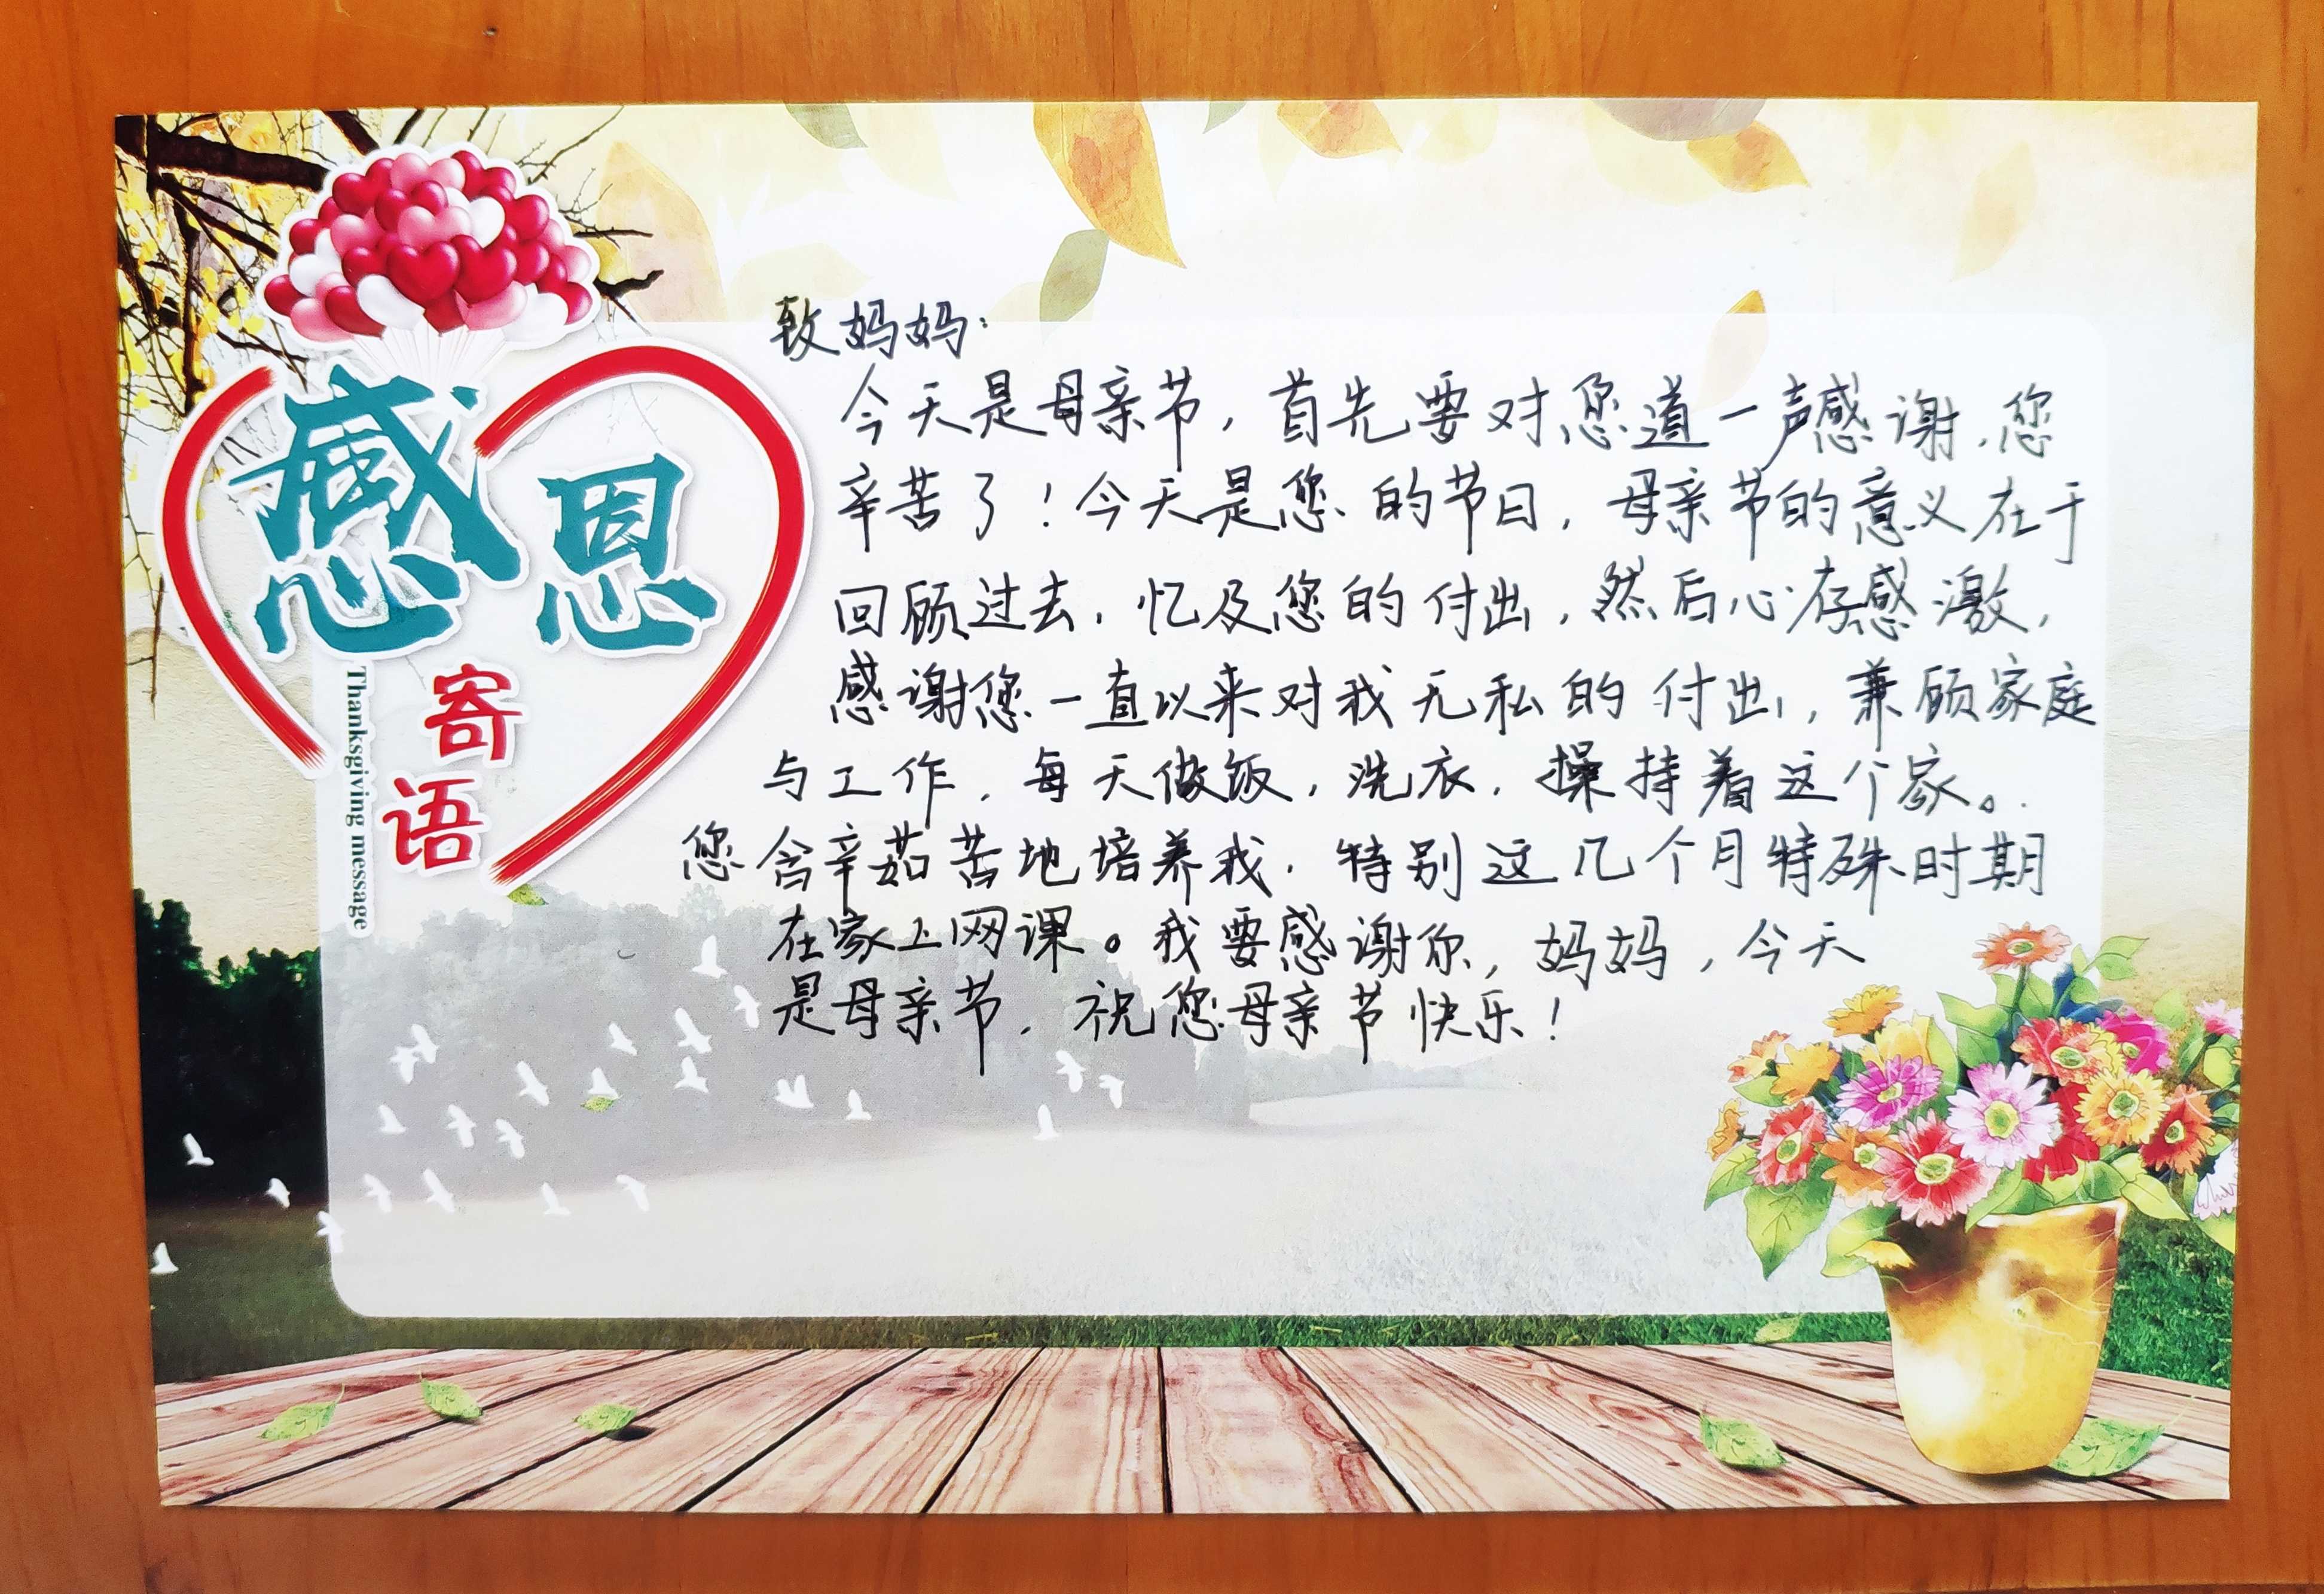 感恩
寄
语
Thanksgiving message
致妈妈：
今天是母亲节，首先要对您道一声感谢，您
辛苦了！今天是您的节日，母亲节的意义在于
回顾过去，忆及您的付出，然后心存感激，
感谢您一直以来对我无私的付出，兼顾家庭
与工作，每天做饭，洗衣，操持着这个家。
您含辛茹苦地培养我，特别这几个月特殊时期
在家上网课。我要感谢你，妈妈，今天
是母亲节，祝您母亲节快乐！